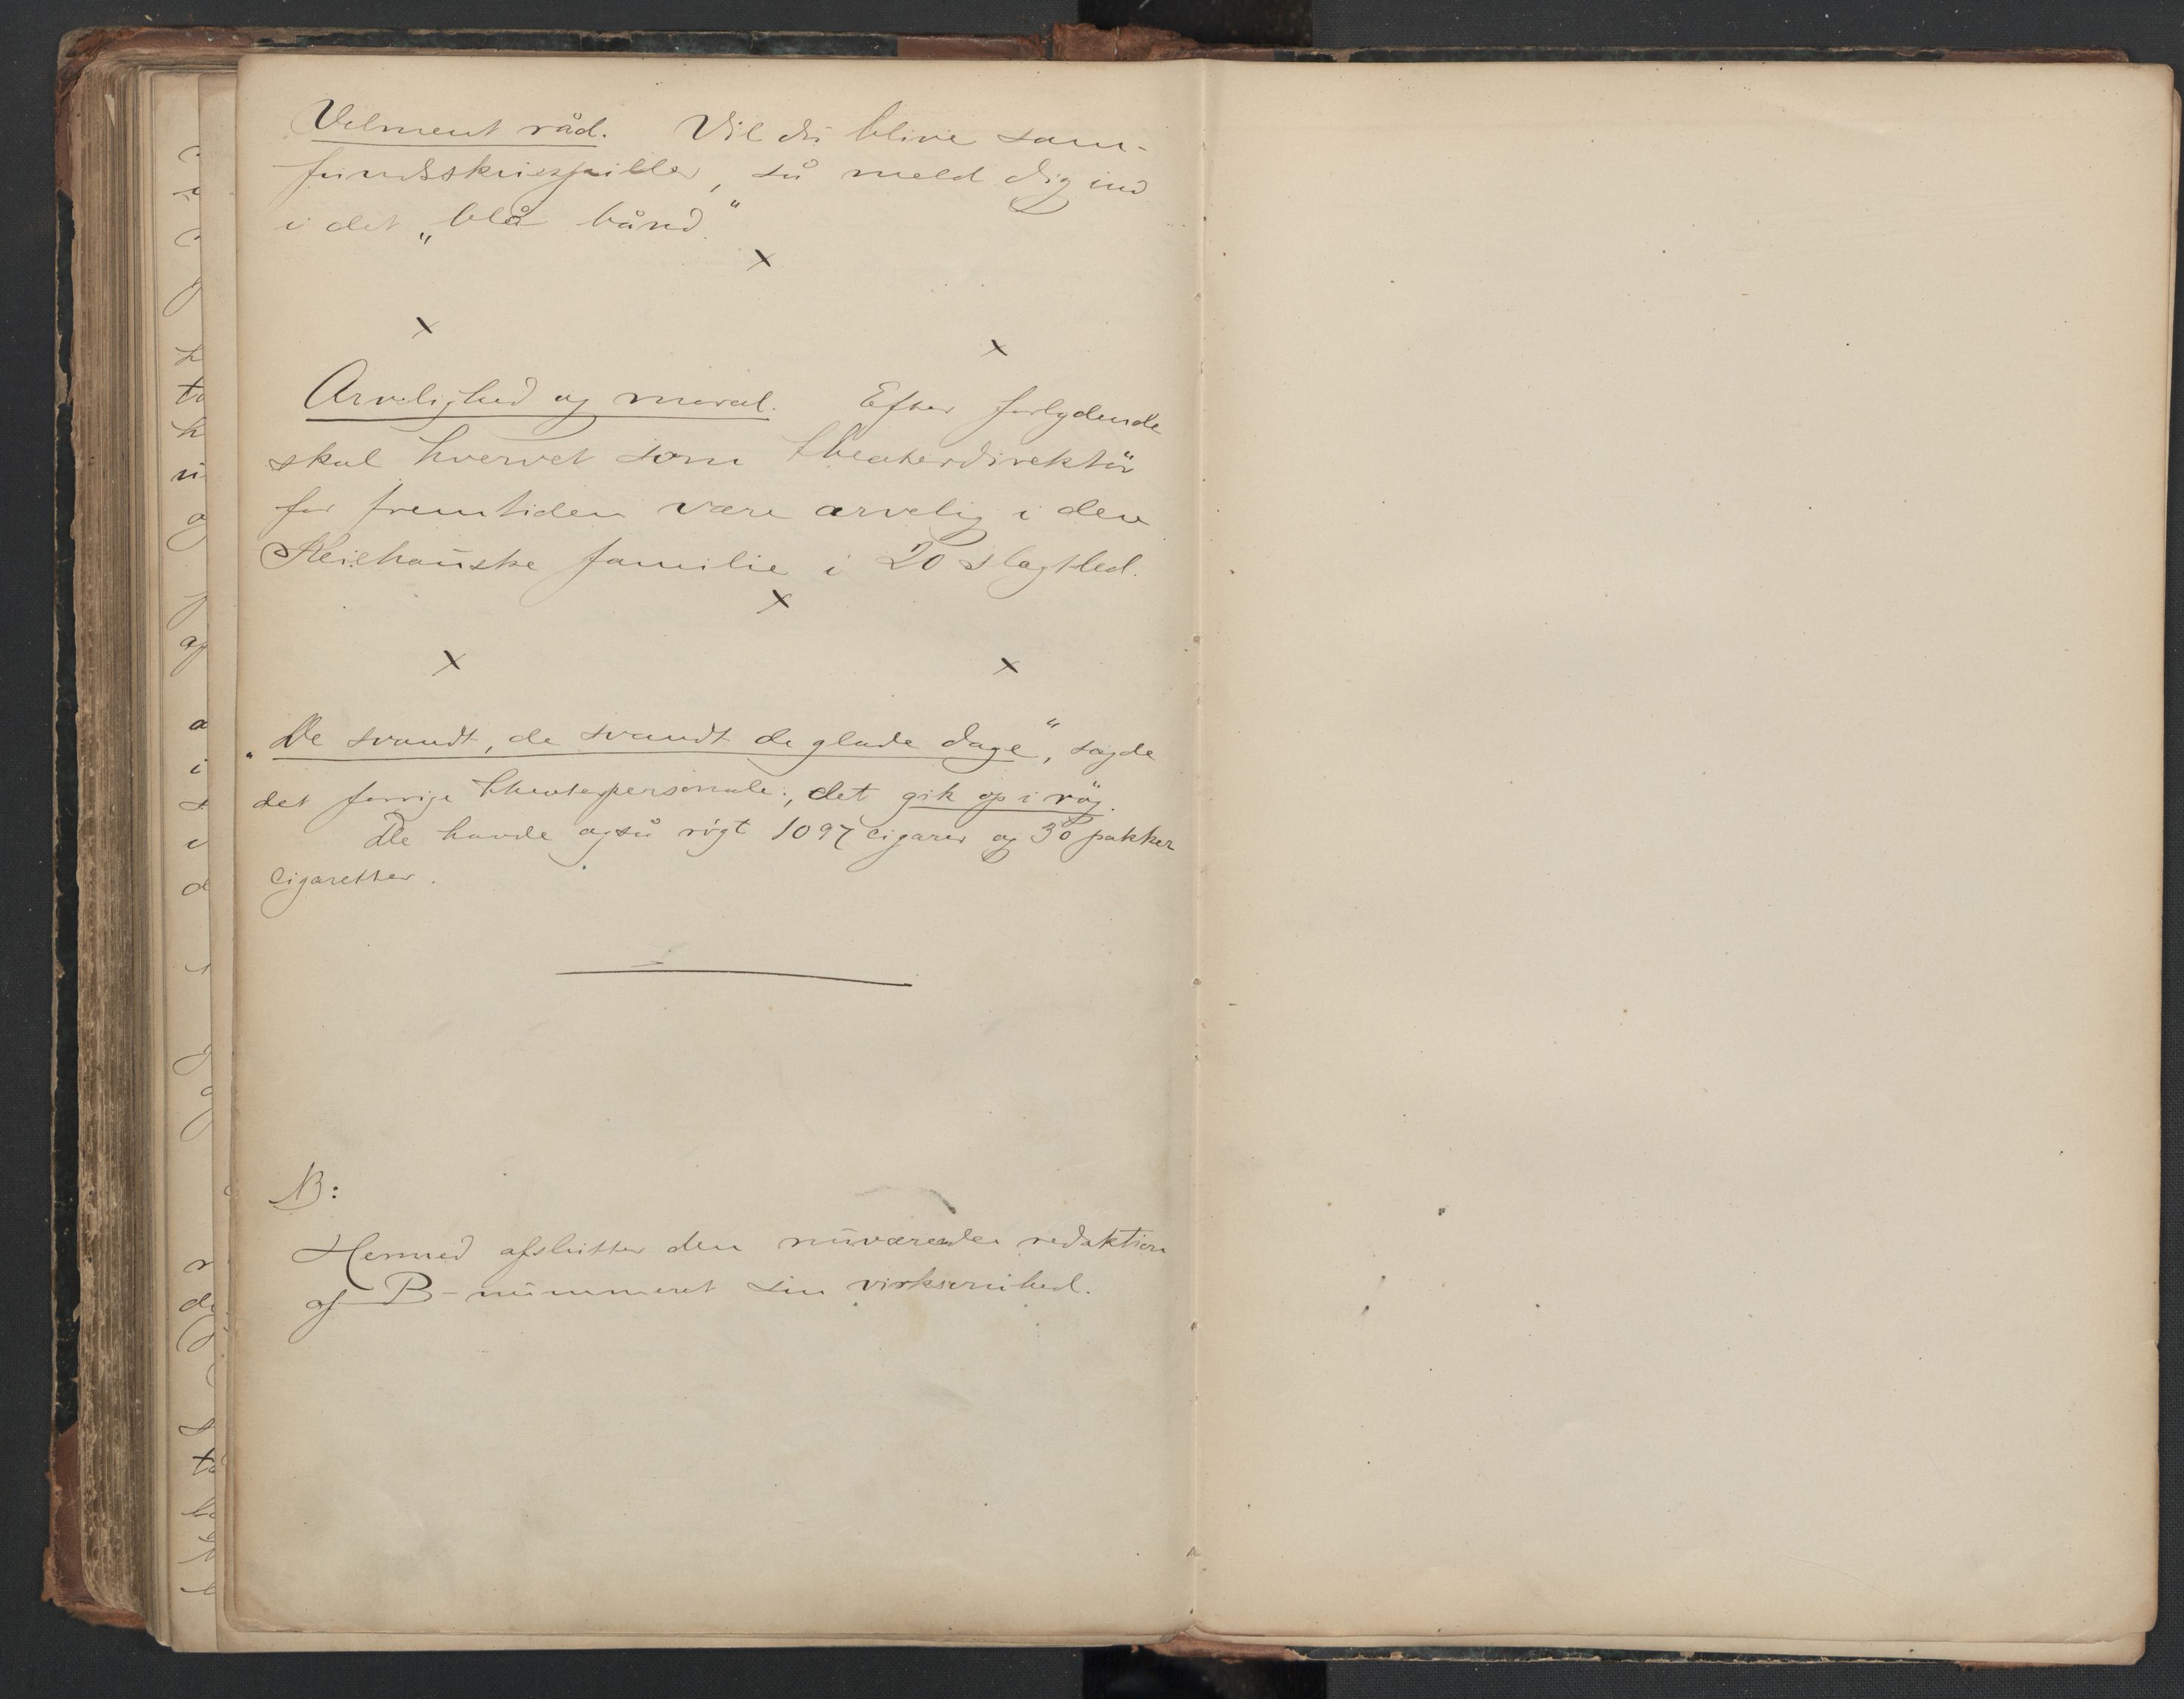 Velment råd. Vil du blive sam-
fundsskuespiller, så meld dig ind
i det „blå bånd."
x
x x
Arvelighed og moral. Efter forlydende
skal hvervet som theaterdirektör
for fremtiden være arvelig i den
familie i 20 slagtled.
x
x x
„De svandt, de svandt de glade dage", sagde
det forrige theaterpersonale; det gik op i røg.
De havde også røgt 1097 cigarer og 30 pakker
cigaretter.
NB:
Hermed afslutter den nuværende redaktion
af B-nummeret sin virksomhed.